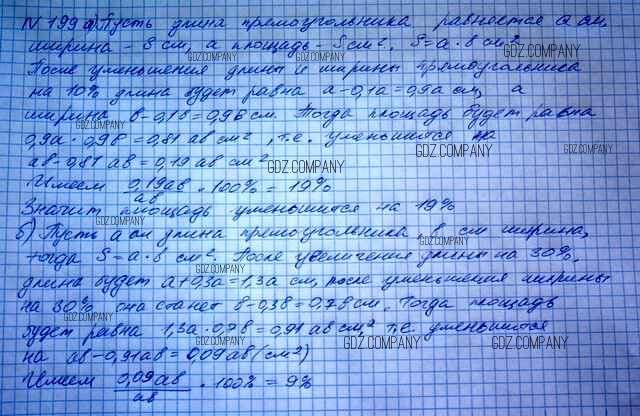 N 199 а) Пусть длина прямоугольника равняется а см,
ширина - в см, а площадь - S см². S=а·в см².
После уменьшения длины и ширины прямоугольника
на 10% длина будет равна а-0,1а=0,9а см, а
ширина в-0,1в=0,9в см. Тогда площадь будет равна
0,9а·0,9в=0,81 ав см², т.е. уменьшится на
ав-0,81 ав=0,19 ав см²
Имеем 0,19ав/ав · 100% = 19%
Значит площадь уменьшится на 19%
б) Пусть а см длина прямоугольника, в см ширина,
тогда S=а·в см². После увеличения длины на 30%,
длина будет а+0,3а=1,3а см, после уменьшения ширины
на 30% она станет в-0,3в=0,7в см. Тогда площадь
будет равна 1,3а·0,7в=0,91 ав см² т.е. уменьшится
на ав-0,91ав=0,09ав (см²)
Имеем 0,09ав/ав · 100% = 9%
GDZ.COMPANY
GDZ.COMPANY
GDZ.COMPANY
GDZ.COMPANY
GDZ.COMPANY
GDZ.COMPANY
GDZ.COMPANY
GDZ.COMPANY
GDZ.COMPANY
GDZ.COMPANY
GDZ.COMPANY
GDZ.COMPANY
GDZ.COMPANY
GDZ.COMPANY